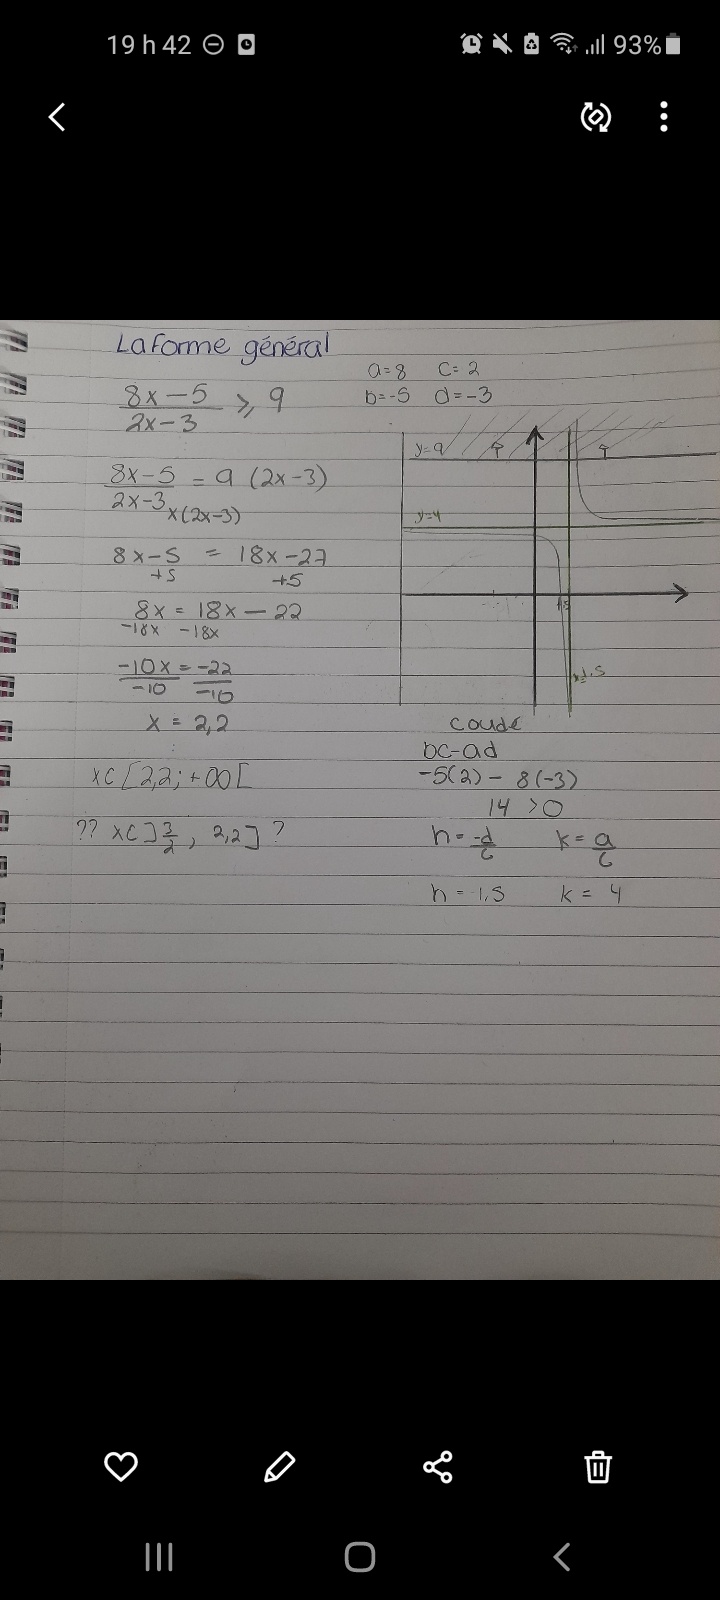 19 h 42
93%
La forme général
8x-5 / 2x-3 ⩾ 9
a=8 c=2
b=-5 d=-3
8x-5 / 2x-3 x(2x-3) = 9 (2x-3)
8x-5 = 18x-27
+5 +5
8x = 18x - 22
-18x -18x
-10x / -10 = -22 / -10
x = 2,2
x C [2,2; +∞[
?? x C ] 3/2 , 2,2] ?
y=9
y=4
1,5
x=1.5
coude
bc-ad
-5(2) - 8(-3)
14 >0
h = -d/c k = a/c
h = 1,5 k = 4